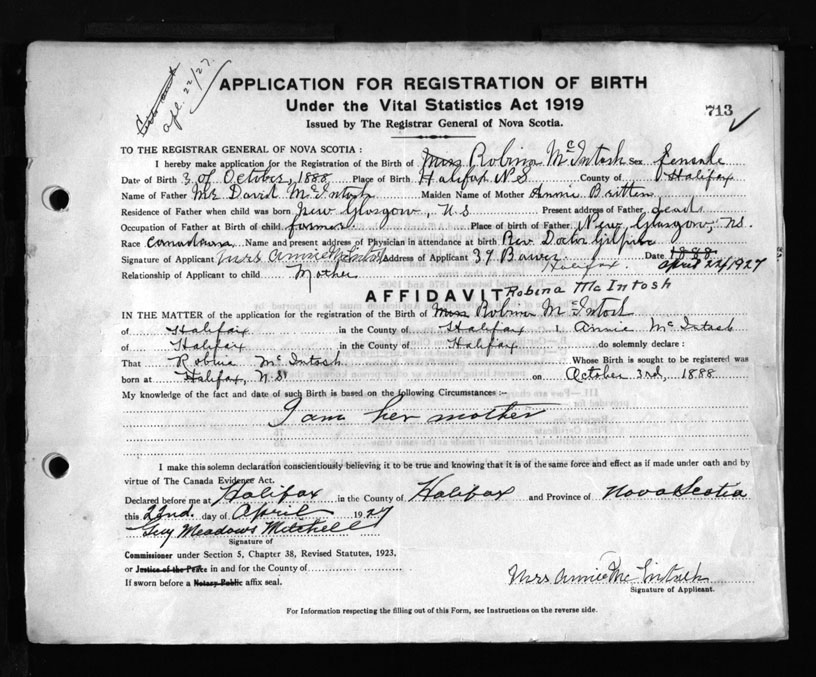 Apl. 22/27.
APPLICATION FOR REGISTRATION OF BIRTH
Under the Vital Statistics Act 1919
713
Issued by The Registrar General of Nova Scotia.
TO THE REGISTRAR GENERAL OF NOVA SCOTIA:
I hereby make application for the Registration of the Birth of Miss Robina McIntosh Sex female
Date of Birth 3 of October, 1888 Place of Birth Halifax N.S County of Halifax
Name of Father Mr David McIntosh Maiden Name of Mother Annie Britten
Residence of Father when child was born New Glasgow, N.S Present address of Father dead
Occupation of Father at Birth of child farmer Place of birth of Father New Glasgow, N.S.
Race Canadian Name and present address of Physician in attendance at birth Rev. Doctor
Signature of Applicant Mrs Annie McIntosh Address of Applicant 39 Date 1888
Halifax. April 22/1927
Relationship of Applicant to child Mother
AFFIDAVIT Robina McIntosh
IN THE MATTER of the application for the registration of the Birth of Miss Robina McIntosh
of Halifax in the County of Halifax I, Annie McIntosh
of Halifax in the County of Halifax do solemnly declare:
That Robina McIntosh Whose Birth is sought to be registered was
born at Halifax, N.S on October 3rd, 1888
My knowledge of the fact and date of such Birth is based on the following Circumstances:-
I am her mother
I make this solemn declaration conscientiously believing it to be true and knowing that it is of the same force and effect as if made under oath and by
virtue of The Canada Evidence Act.
Declared before me at Halifax in the County of Halifax and Province of Nova Scotia
this 22nd day of April 1927
Guy Meadows Mitchell
Signature of
Commissioner under Section 5, Chapter 38, Revised Statutes, 1923,
or Justice of the Peace in and for the County of
If sworn before a Notary Public affix seal.
Mrs Annie McIntosh
Signature of Applicant.
For Information respecting the filling out of this Form, see Instructions on the reverse side.